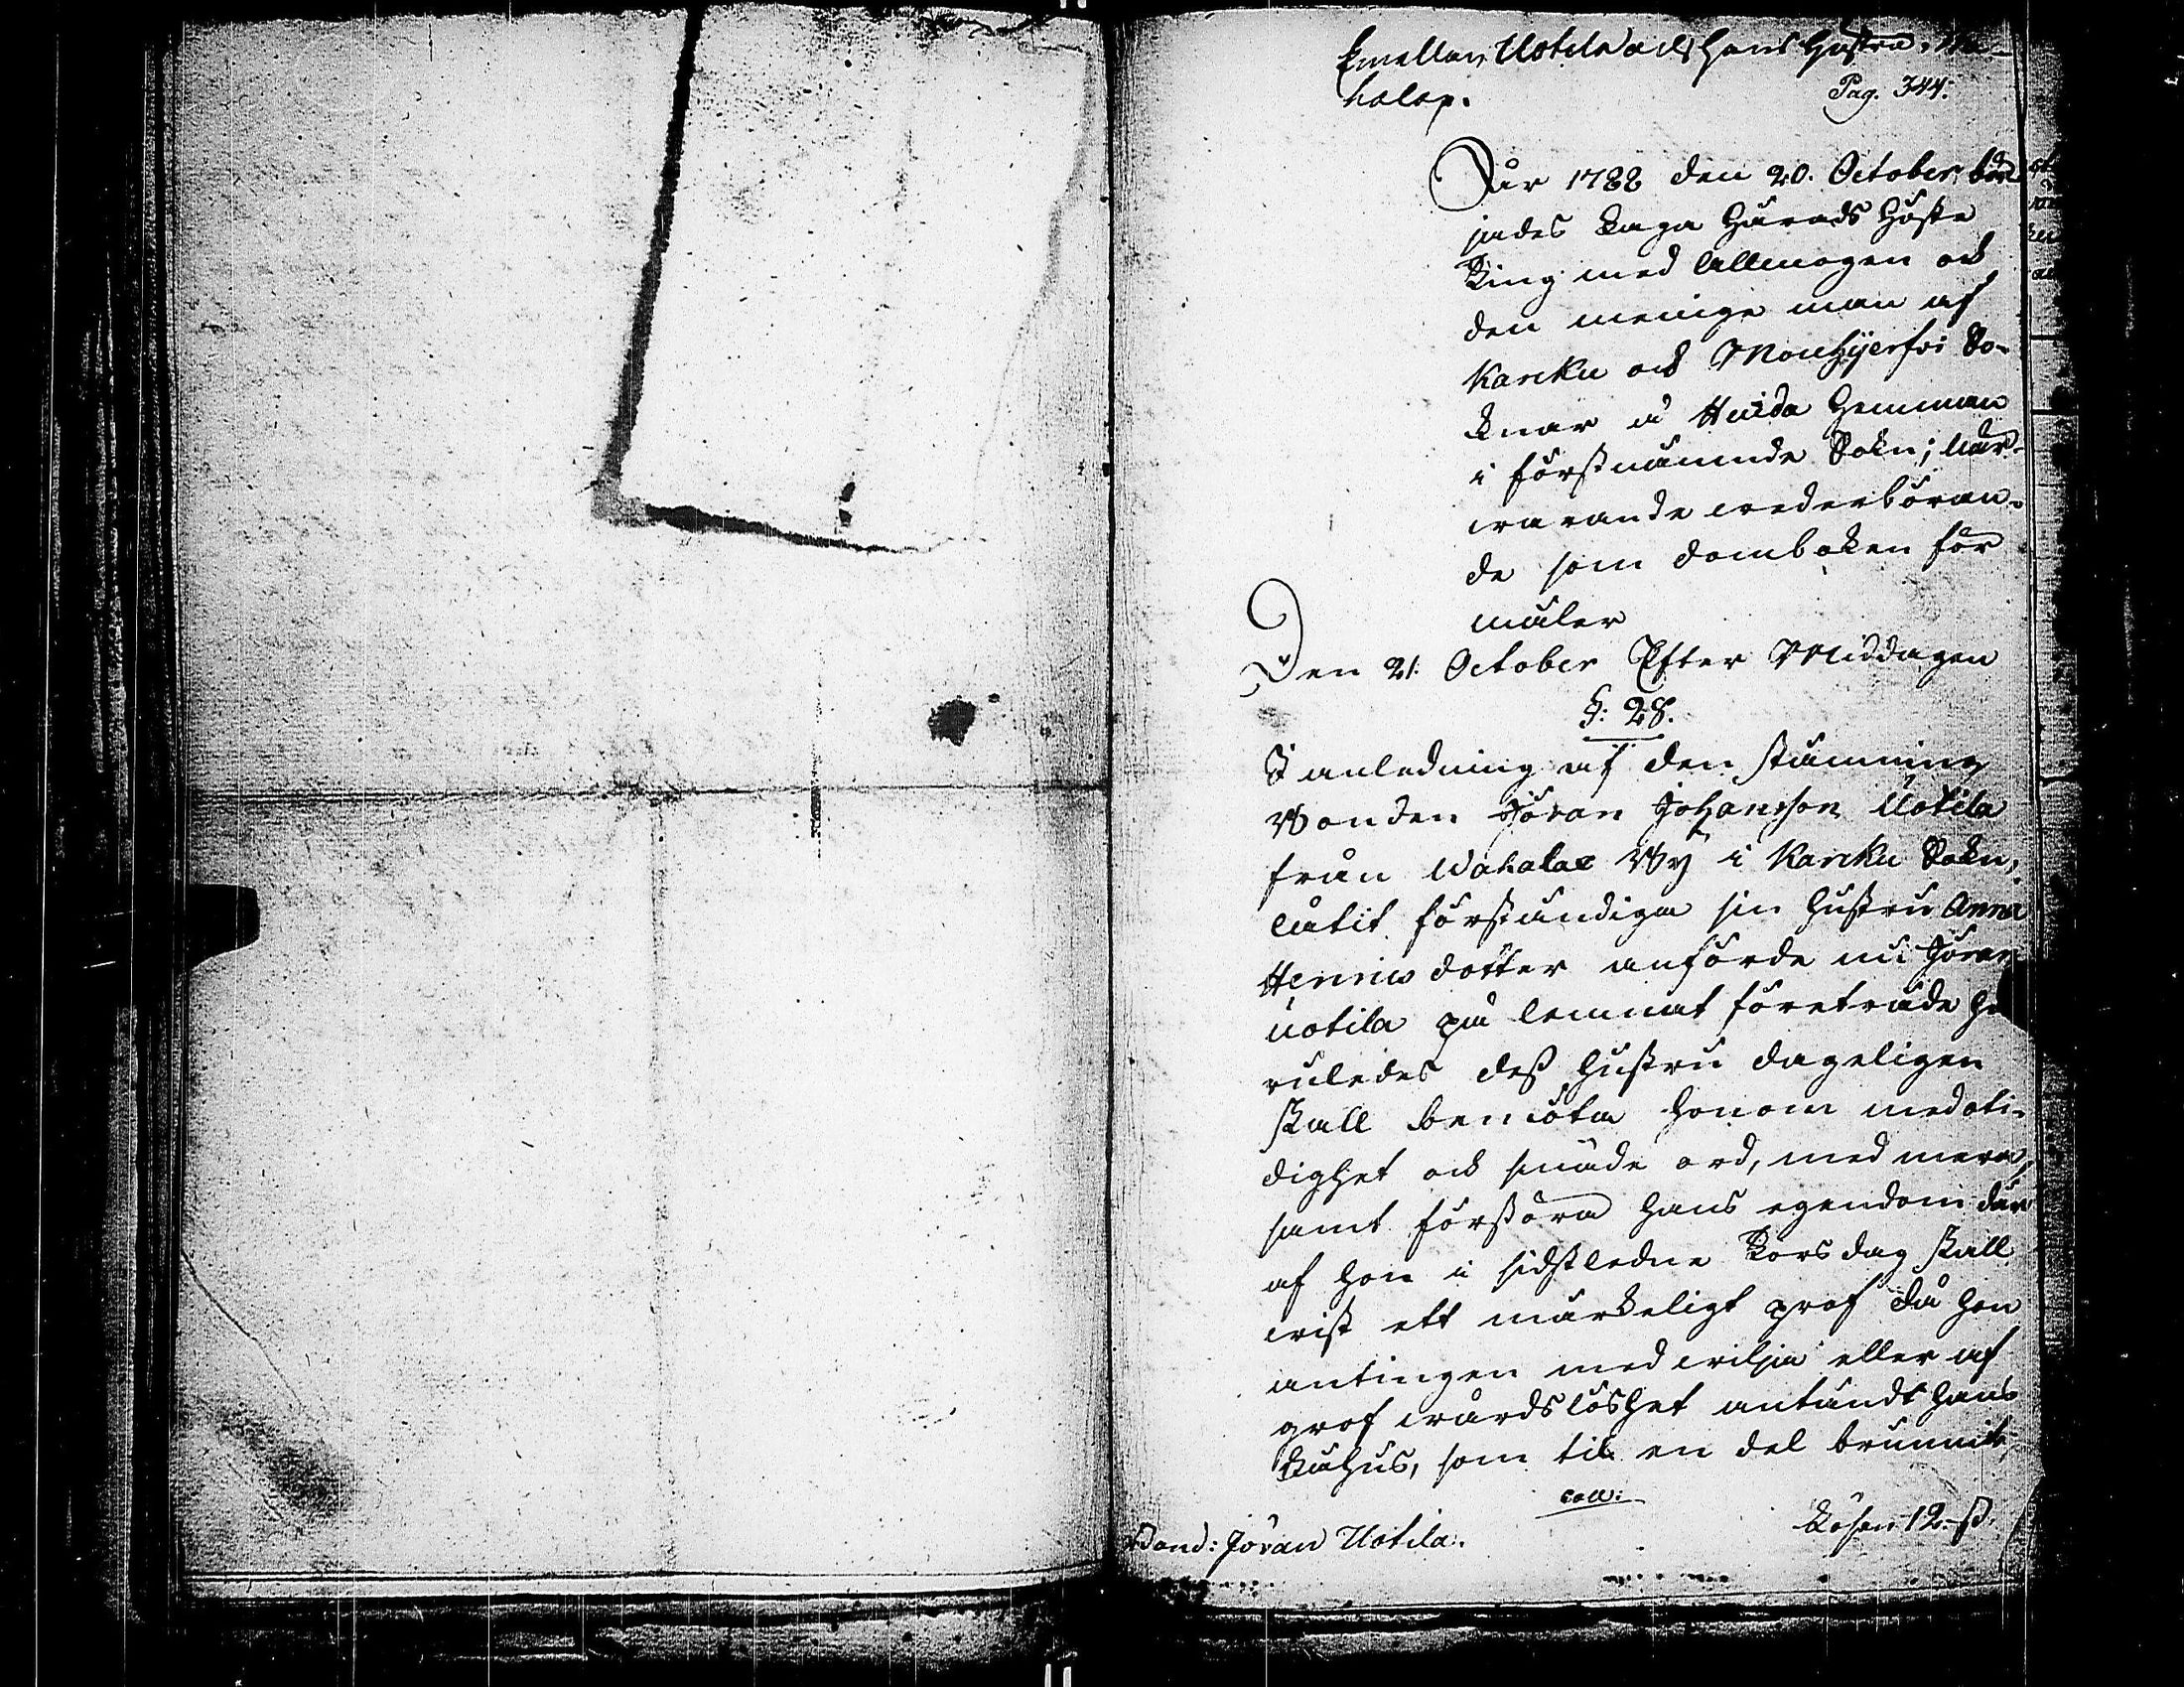 Emellan Uotila och hans Hustru. Wa-
halax.
Pag. 344:
År 1788 den 20. October bör-
jades Laga Härads Höste
Ting med Allmogen och
den menige man af
Karcku och Mouhijerfvi So-
cknar å Huida Hemman
i förstnämnde Sokn; när-
varande vederböran-
de som domboken för
mäler
Den 21. October Efter Middagen
§: 28.
I anledning af den stämning
Bonden Jöran Johansson Uotila
från Wahalax By i Karcku Sokn,
låtit förständiga sin hustru Anna
Henricsdotter anförde nu Jöran
Uotila på lemnat företräde hu
ruledes dess hustru dageligen
skall bemöta honom med oti-
dighet och snäde ord, med mera,
samt förstöra hans egendom där
af hon i sidstledne Torsdag skall
vist ett märkeligt prof då hon
antingen med vilja eller af
grof vårdslöshet antändt hans
Kuhus, som til en del brunnit,
coll:
Bond: Jöran Uotila.
Lösen 12. ß.